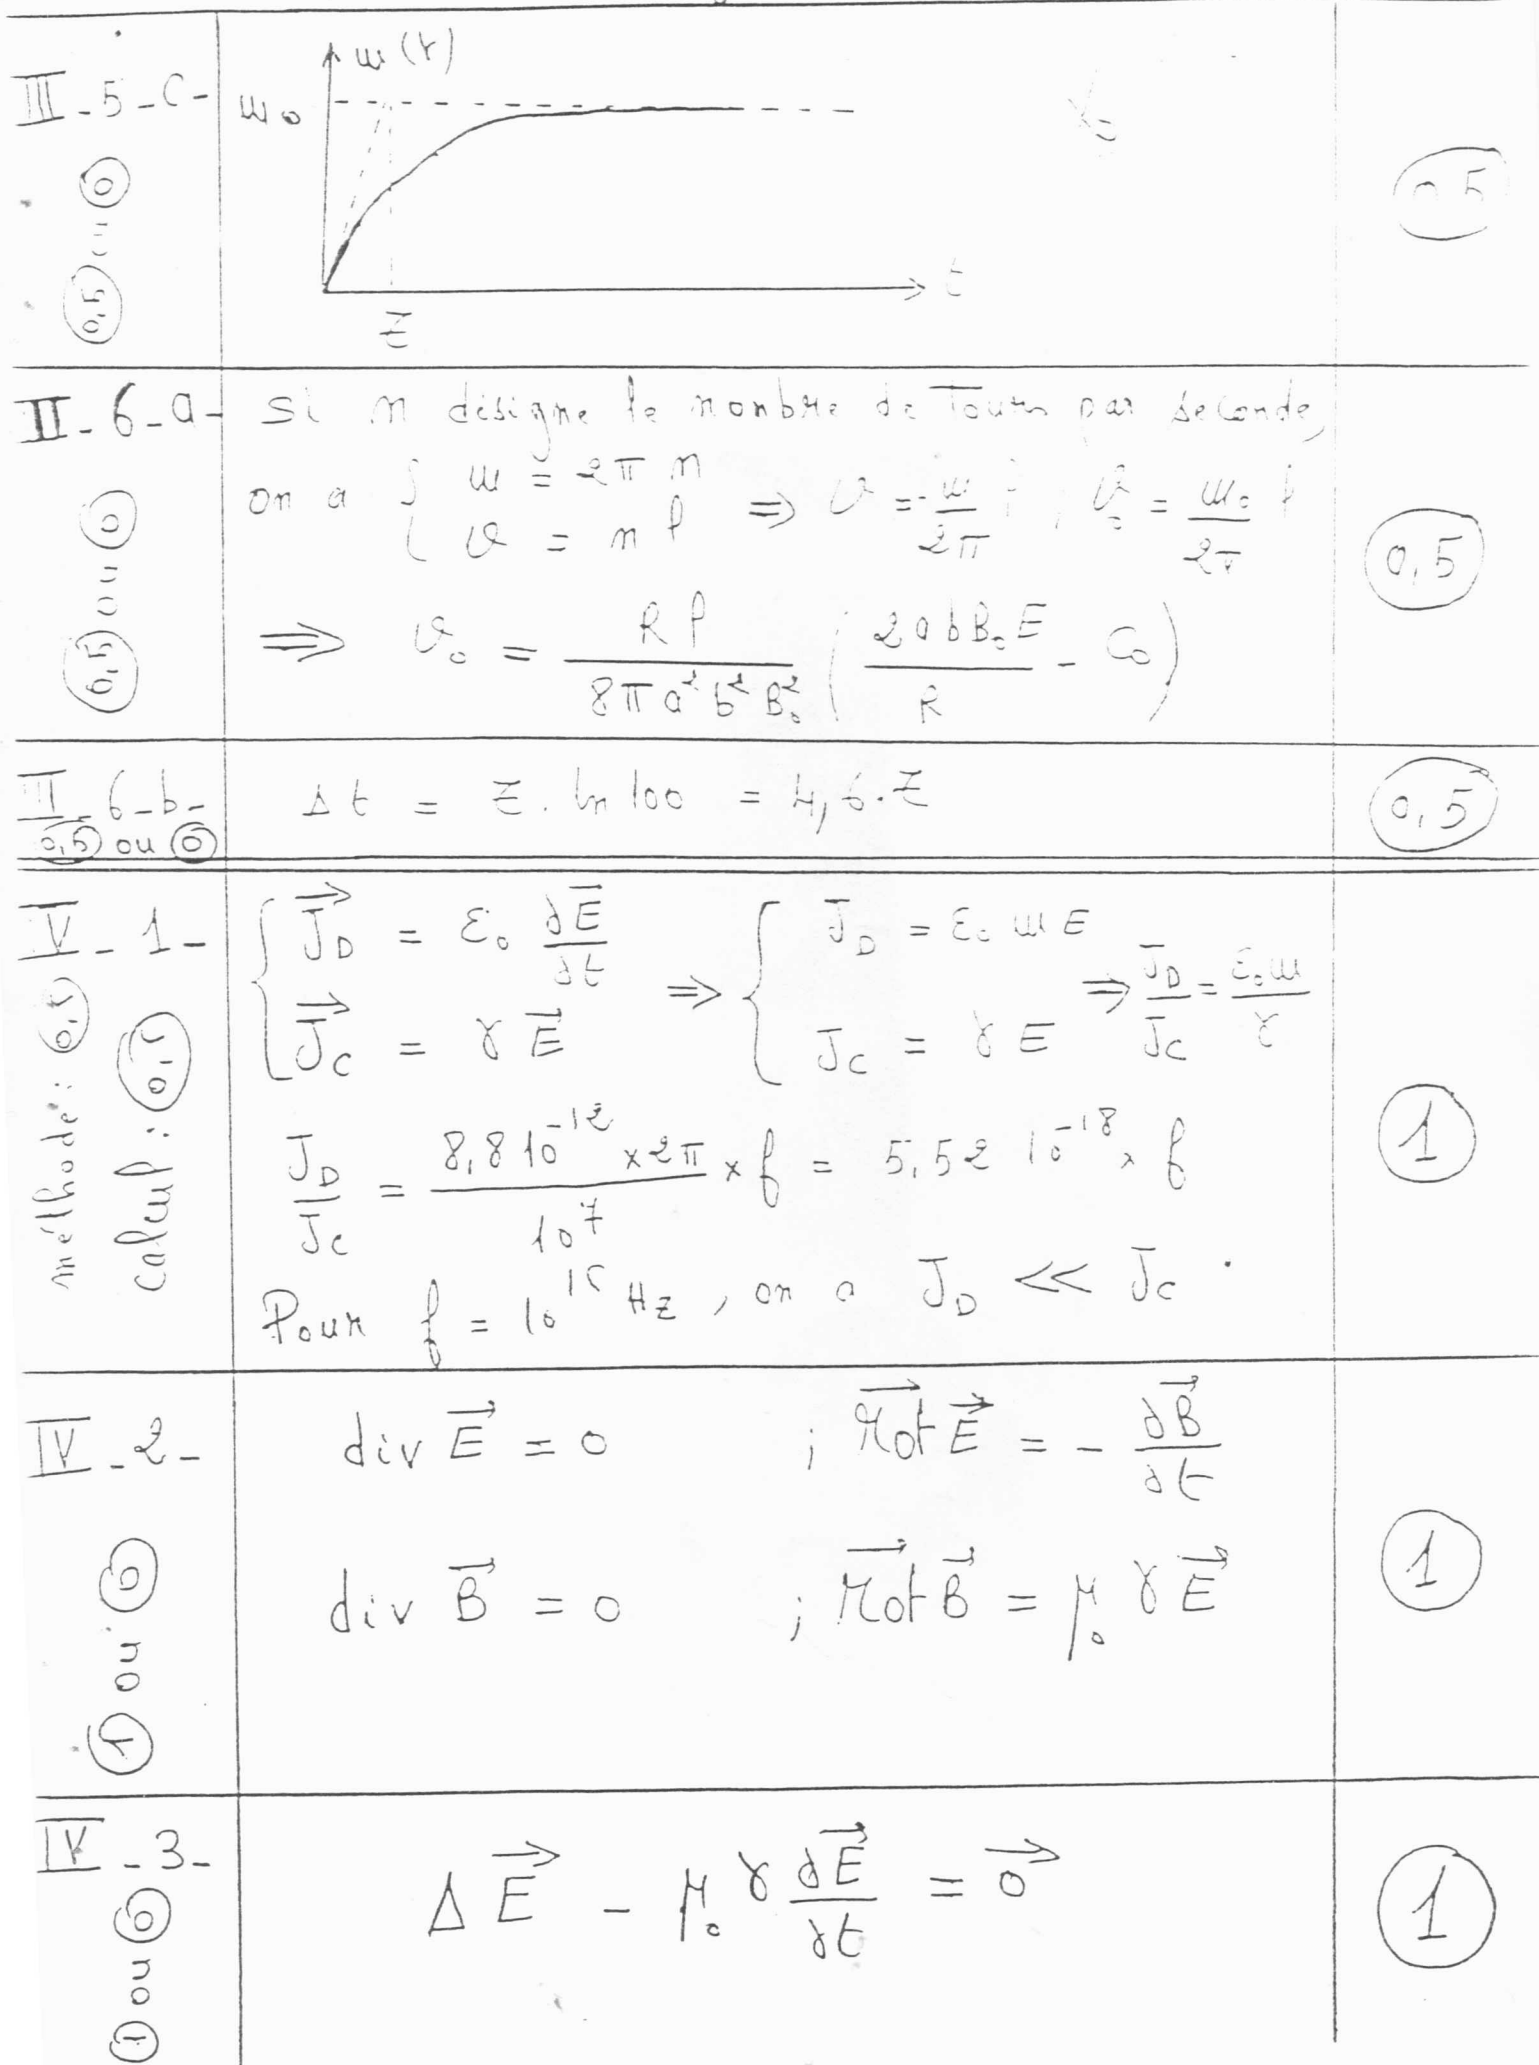 III-5-c-
0,5 ou 0
ω(t)
ω₀
t
τ
0,5
II-6-a-
0,5 ou 0
Si n désigne le nonbre de Tours par seconde,
on a { ω = 2π n
v = n l ⇒ v = ω/2π l ; v₀ = ω₀/2π l
⇒ v₀ = R l / 8π a² b² B₀² ( 2abB₀E / R - C₀ )
0,5
II-6-b-
0,5 ou 0
Δt = τ. ln 100 = 4,6.τ
0,5
IV-1-
méthode: 0,5
calcul: 0,5
{ J⃗_D = ε₀ ∂E⃗/∂t
J⃗_C = γ E⃗
⇒ { J_D = ε₀ ω E
J_C = γ E
⇒ J_D/J_C = ε₀ω/γ
J_D/J_C = 8,8 10⁻¹² × 2π / 10⁷ × f = 5,52 10⁻¹⁸ × f
Pour f = 10¹⁵ Hz, on a J_D << J_C.
1
IV-2-
1 ou 0
div E⃗ = 0 ; rot⃗ E⃗ = - ∂B⃗/∂t
div B⃗ = 0 ; rot⃗ B⃗ = μ₀ γ E⃗
1
IV-3-
1 ou 0
Δ E⃗ - μ₀ γ ∂E⃗/∂t = 0⃗
1